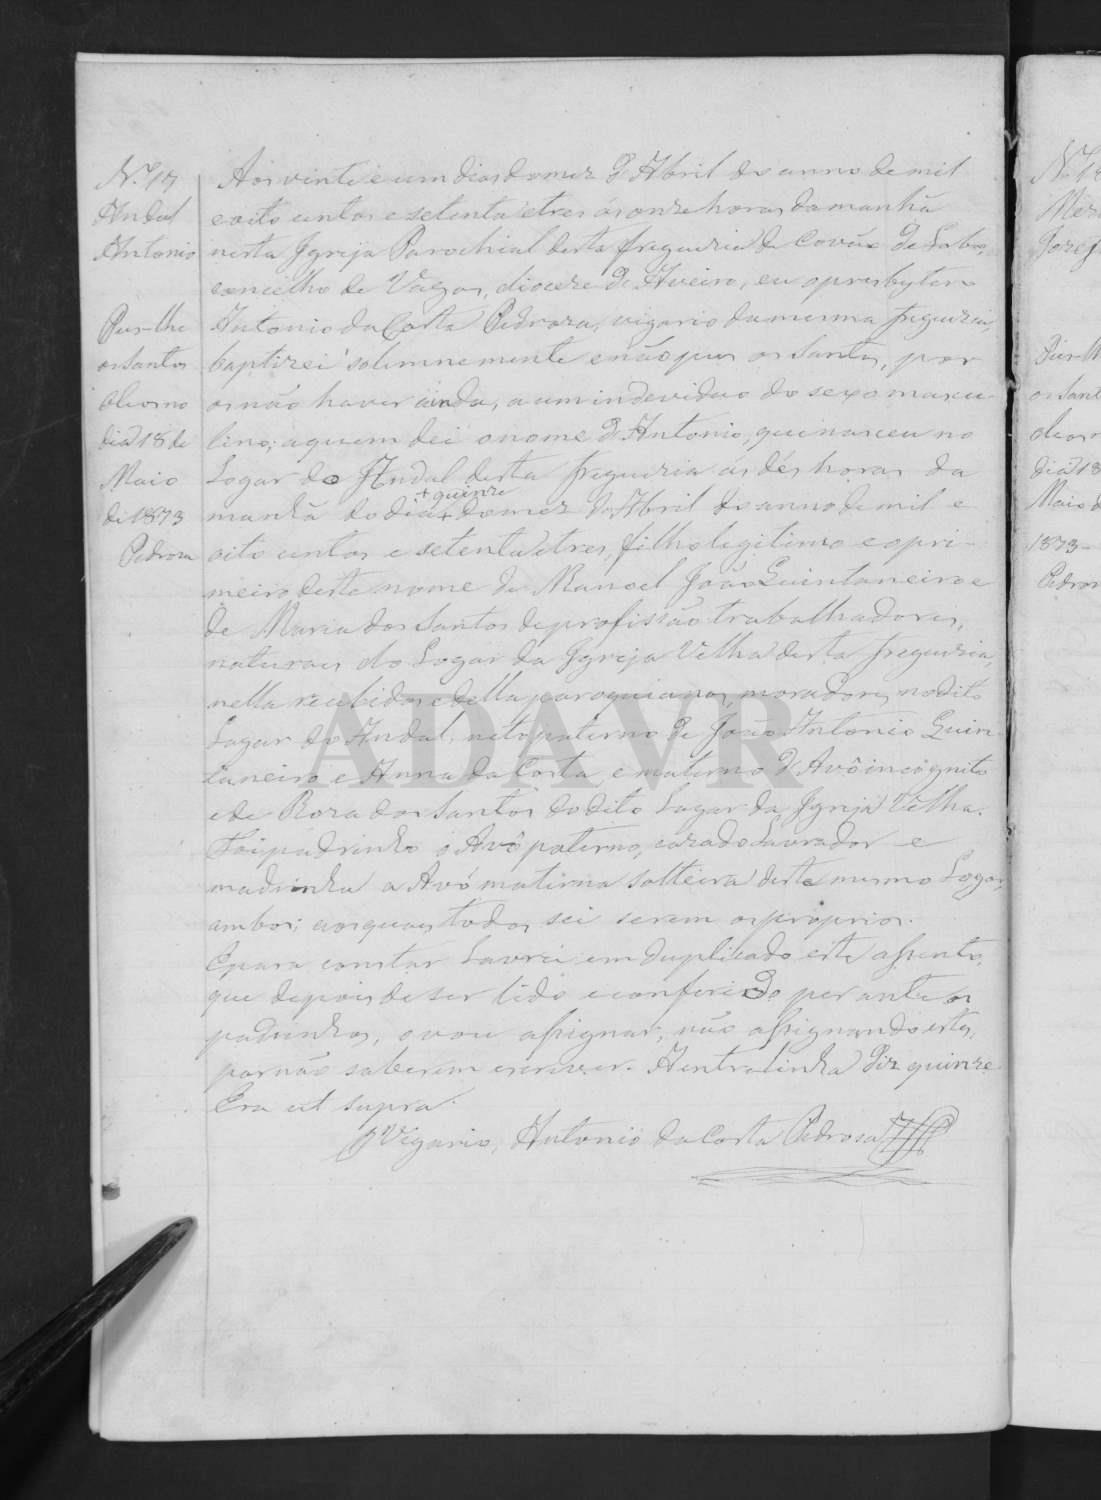 N.º 17
Andal
Antonio
Puz-lhe
os Santos
oleos no
dia 18 de
Maio
de 1873
Pedroza
Aos vinte e um dias do mez d'Abril do anno de mil
e oito centos e setenta e tres ás onze horas da manhã
nesta Igreja Parochial desta freguezia de Covão de Lobo,
concelho de Vagos, diocese de Aveiro, eu o presbytero
Antonio da Costa Pedroza, vigario da mesma freguezia,
baptizei solemnemente e não puz os Santos, por
os não haver ainda, a um individuo do sexo mascu-
lino; a quem dei o nome d'Antonio, que nasceu no
Logar do Andal desta freguezia ás dés horas da
+ quinze
manhã do dia + do mez de Abril do anno de mil e
oito centos e setenta e tres, filho legitimo e o pri-
meiro deste nome de Manoel João Quintaneiro e
de Maria dos Santos de profissão trabalhadores,
naturaes do Logar da Igreja Velha desta freguezia,
nella recebidos e della paroquianos, moradores no dito
Lugar do Andal, neto paterno de João Antonio Quin-
taneiro e Anna da Costa, e materno d'Avô incognito
e de Roza dos Santos do dito Lugar da Igreja Velha.
Foi padrinho o Avô paterno, cazado Lavrador e
madrinha a Avó materna solteira deste mesmo Logar,
ambos; aos quaes todos sei serem os proprios.
E para constar Lavrei em duplicado este assento,
que depois de ser lido e conferido perante os
padrinhos, o vou assignar, não assignando estes,
por não saberem escrever. A entrelinha diz quinze
Era ut supra.
O Vigario, Antonio da Costa Pedrosa
ADAVR
Jozé
Puz-lh
os Sant
oleos n
dia 18
Maio d
1873-
Pedroz